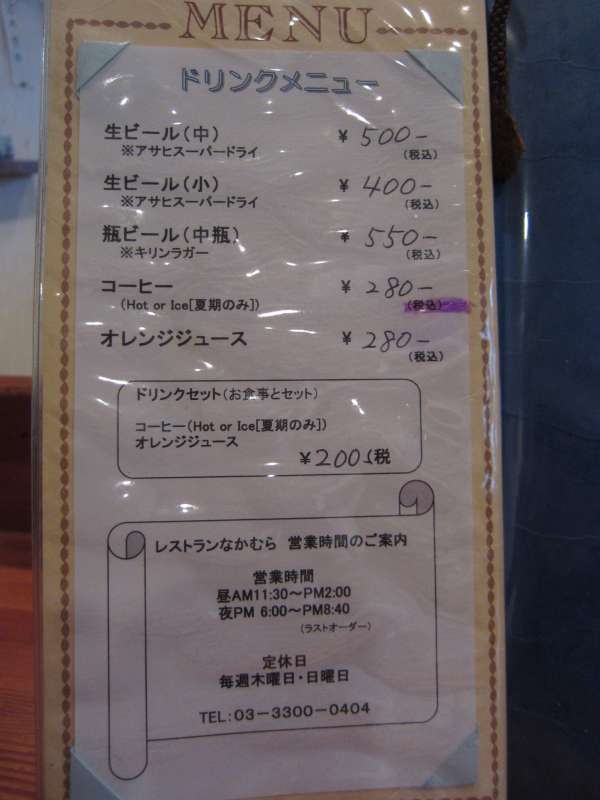 MENU
ドリンクメニュー
生ビール(中) ¥ 500-
※アサヒスーパードライ (税込)
生ビール(小) ¥ 400-
※アサヒスーパードライ (税込)
瓶ビール(中瓶) ¥ 550-
※キリンラガー (税込)
コーヒー ¥ 280-
(Hot or Ice[夏期のみ]) (税込)
オレンジジュース ¥ 280-
(税込)
ドリンクセット(お食事とセット)
コーヒー(Hot or Ice[夏期のみ])
オレンジジュース
¥200 (税
レストランなかむら 営業時間のご案内
営業時間
昼AM11:30～PM2:00
夜PM 6:00～PM8:40
(ラストオーダー)
定休日
毎週木曜日・日曜日
TEL:03-3300-0404